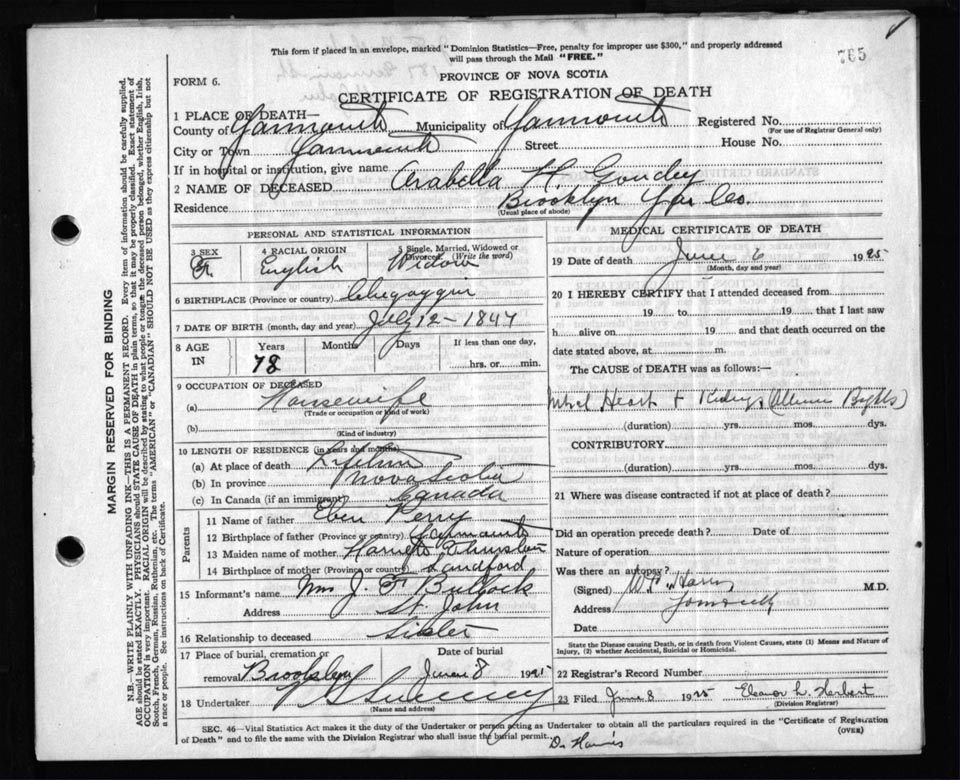 This form if placed in an envelope, marked "Dominion Statistics—Free, penalty for improper use $300," and properly addressed
will pass through the Mail "FREE."
765
PROVINCE OF NOVA SCOTIA
FORM 6.
CERTIFICATE OF REGISTRATION OF DEATH
1 PLACE OF DEATH—
County of Yarmouth Municipality of Yarmouth Registered No.
(For use of Registrar General only)
City or Town Yarmouth Street House No.
If in hospital or institution, give name
2 NAME OF DECEASED Arabella H. Goudey
Residence Brooklyn Yar Co.
(Usual place of abode)
PERSONAL AND STATISTICAL INFORMATION
3 SEX 4 RACIAL ORIGIN 5 Single, Married, Widowed or Divorced (Write the word)
F English Widow
6 BIRTHPLACE (Province or country) Chegoggin
7 DATE OF BIRTH (month, day and year) July 12 - 1847
8 AGE IN Years Months Days If less than one day,
78 hrs. or min.
9 OCCUPATION OF DECEASED
(a) Housewife
(Trade or occupation or kind of work)
(b)
(Kind of industry)
10 LENGTH OF RESIDENCE (in years and months)
(a) At place of death Lifetime
(b) In province Nova Scotia
(c) In Canada (if an immigrant) Canada
Parents
11 Name of father Eben Perry
12 Birthplace of father (Province or country) Yarmouth
13 Maiden name of mother Harriet Thurston
14 Birthplace of mother (Province or country) Sandford
15 Informant's name Mrs J. F Bullock
Address St. John
16 Relationship to deceased Sister
17 Place of burial, cremation or removal Date of burial
Brooklyn June 8 1925
18 Undertaker V S Sweeney
(Name and address)
MEDICAL CERTIFICATE OF DEATH
19 Date of death June 6 1925
(Month, day and year)
20 I HEREBY CERTIFY that I attended deceased from
19 to 19 that I last saw
h alive on 19 and that death occurred on the
date stated above, at m.
The CAUSE of DEATH was as follows:—
Mitral Heart + Kidneys
(duration) yrs. mos. dys.
CONTRIBUTORY
(duration) yrs. mos. dys.
21 Where was disease contracted if not at place of death?
Did an operation precede death? Date of
Nature of operation
Was there an autopsy?
(Signed) M.D.
Address Yarmouth
Date
State the Disease causing Death, or in death from Violent Causes, state (1) Means and Nature of
Injury, (2) whether Accidental, Suicidal or Homicidal.
22 Registrar's Record Number
23 Filed June 8 1925 Eleanor L. Herbert
(Division Registrar)
SEC. 46—Vital Statistics Act makes it the duty of the Undertaker or person acting as Undertaker to obtain all the particulars required in the "Certificate of Registration
of Death" and to file the same with the Division Registrar who shall issue the burial permit.
(OVER)
Dr Harris
MARGIN RESERVED FOR BINDING
N.B.—WRITE PLAINLY WITH UNFADING INK—THIS IS A PERMANENT RECORD. Every item of information should be carefully supplied.
AGE should be stated EXACTLY. PHYSICIANS should STATE CAUSE OF DEATH in plain terms, so that it may be properly classified. Exact statement of
OCCUPATION is very important. RACIAL ORIGIN will be described by stating to what people or tongue the deceased person belonged, whether English, Irish,
Scotch, French, German, Russian, Ruthenian, etc. The terms "AMERICAN" or "CANADIAN" SHOULD NOT BE USED as they express citizenship but not
a race or people. See instructions on back of Certificate.